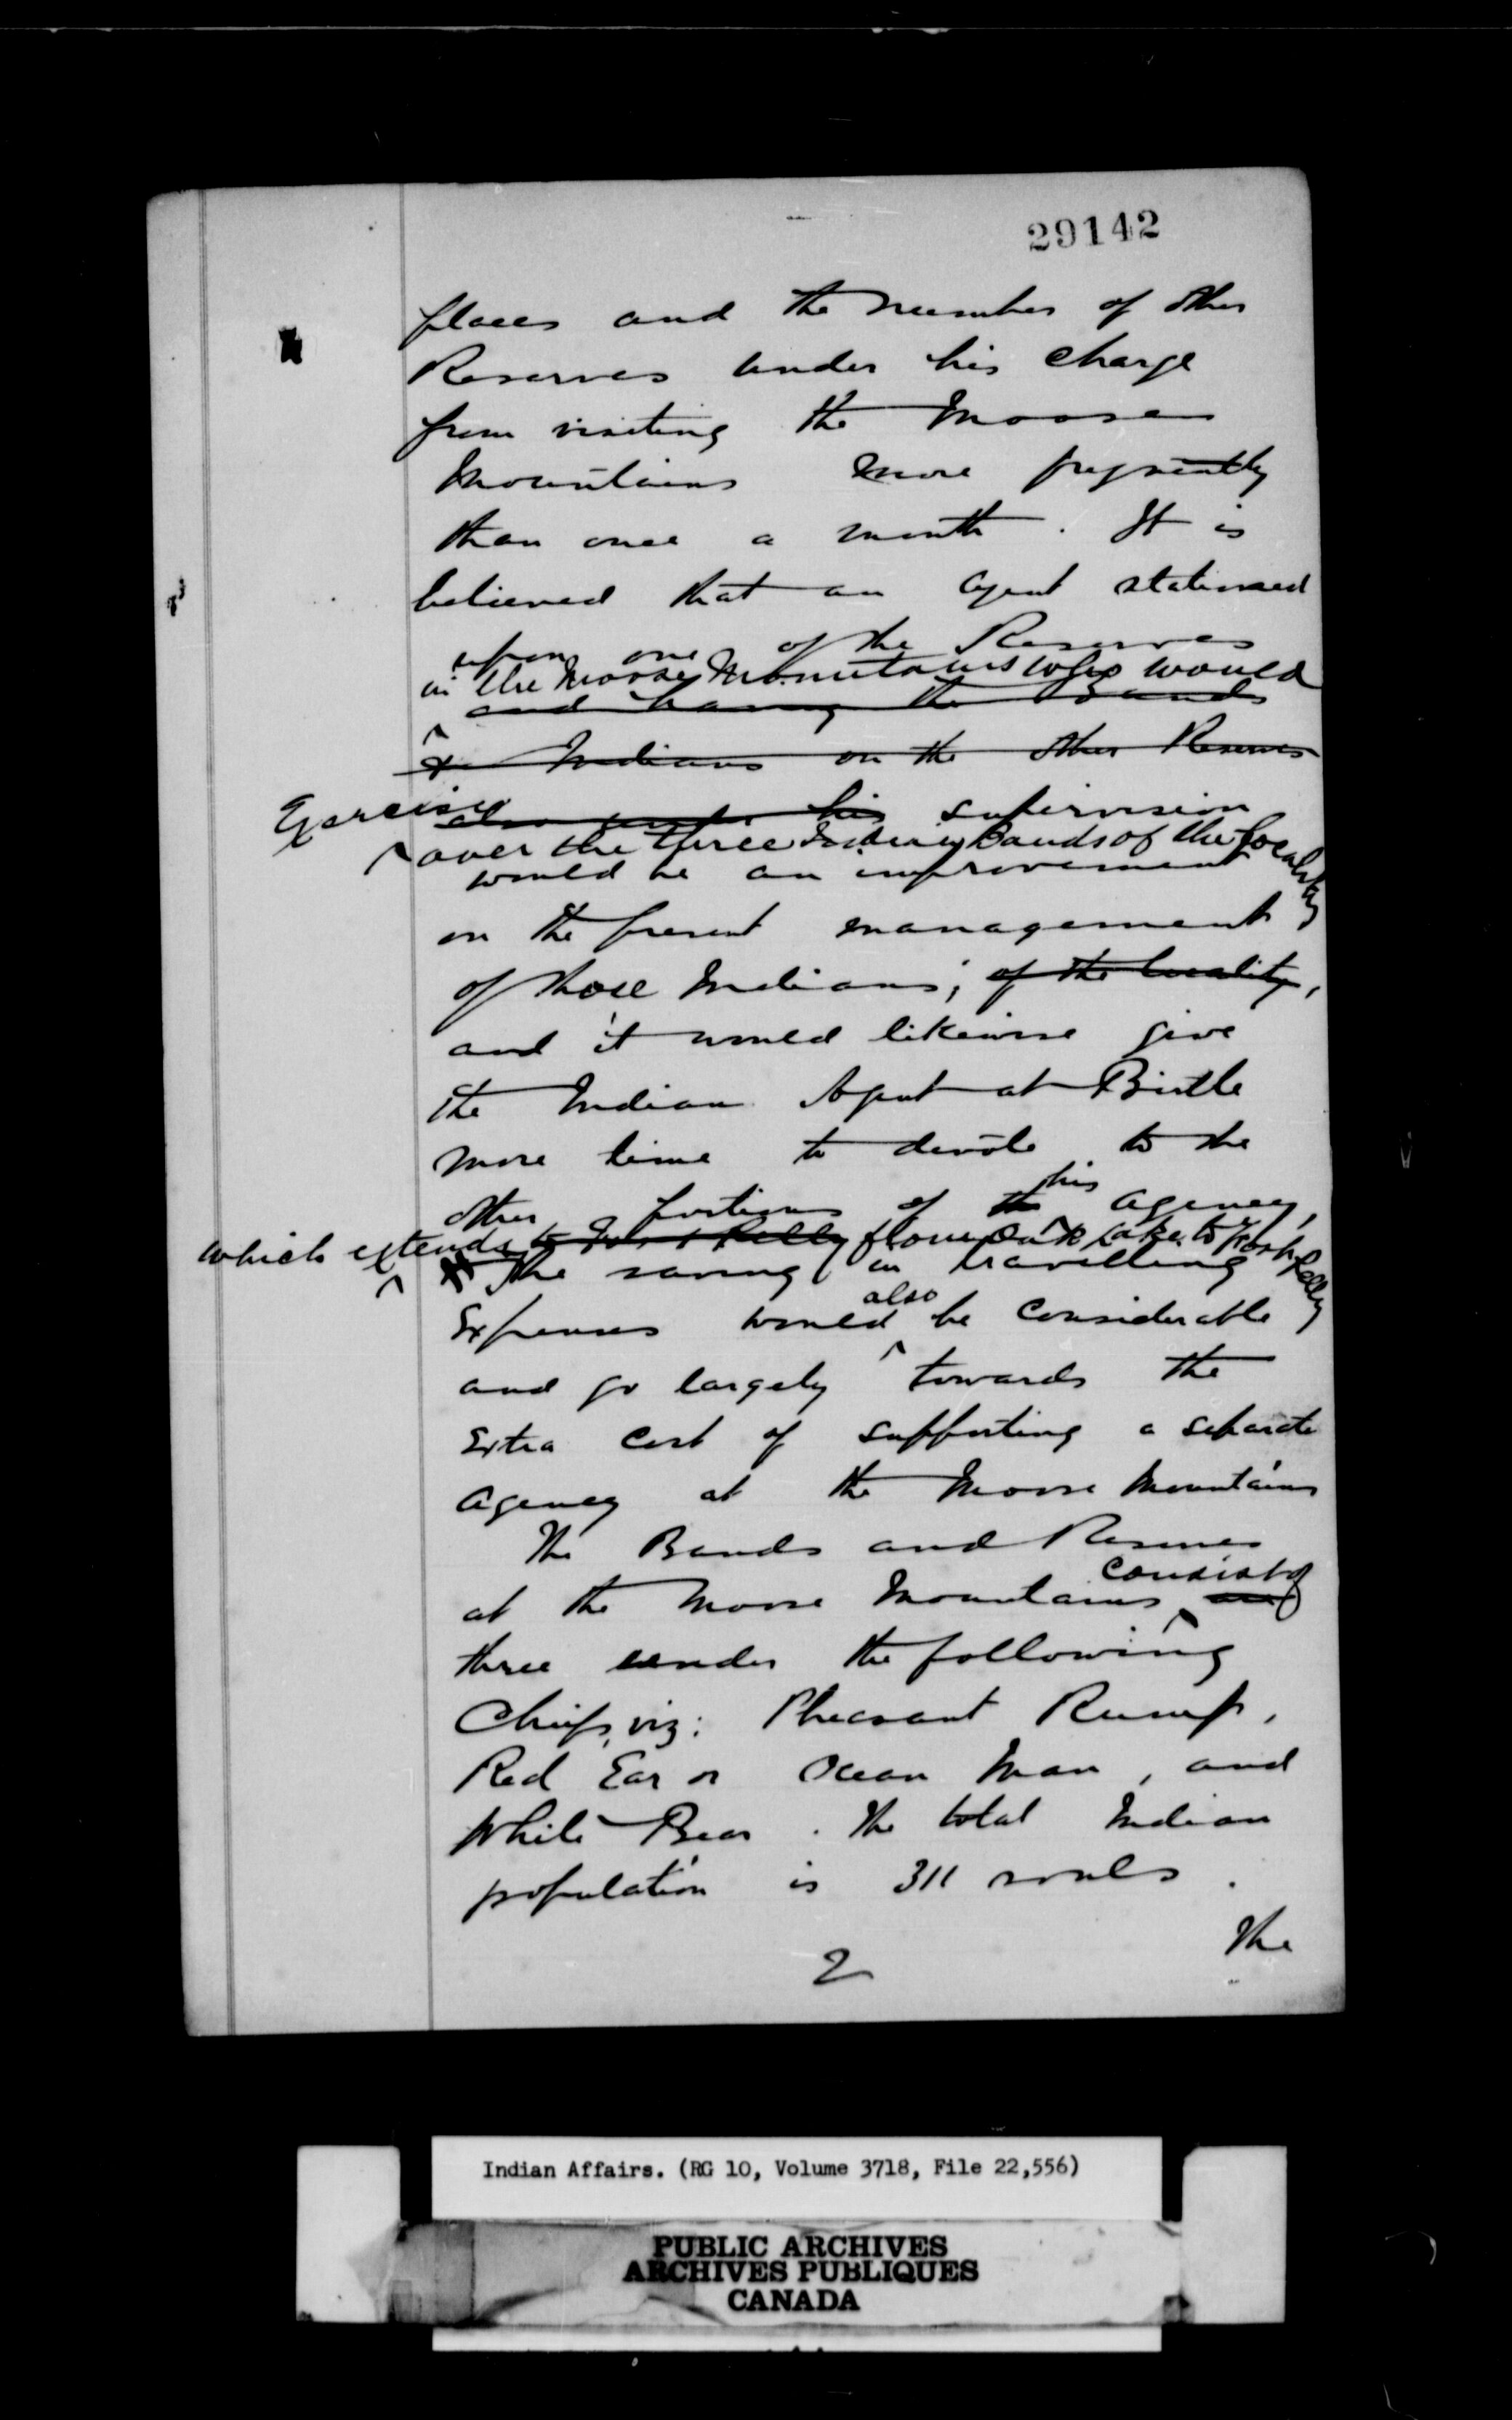 29142
places and the number of other
Reserves under his charge
from visiting the Moose
Mountains more frequently
than once a month. It is
believed that an Agent stationed
upon one of the Reserves
in the Moose Mountains who would
and having the Bands
& Indians on the other Reserves
Exercise also under his supervision
over the three Indian Bands of the locality
would be an improvement
on the present management
of those Indians; of the locality,
and it would likewise give
the Indian Agent at Birtle
more time to devote to the
his
other portions of the agency,
which extends to Fort Pelly from Oak Lake to Fort Pelly
The saving in travelling
also
Expenses would be considerable
and go largely towards the
Extra cost of supporting a separate
agency at the Moose Mountains
The Bands and Reserves
consist of
at the Moose Mountains are
three under the following
Chiefs, viz: Pheasant Rump,
Red Ear or Ocean Man, and
White Bear. The total Indian
population is 311 souls.
The
2
Indian Affairs. (RG 10, Volume 3718, File 22,556)
PUBLIC ARCHIVES
ARCHIVES PUBLIQUES
CANADA